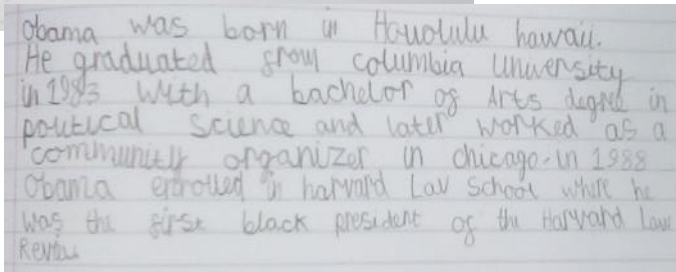 Obama was born in Honolulu hawaii.
He graduated from columbia University
in 1983 with a bachelor of Arts degree in
political science and later worked as a
community organizer in chicago. in 1988
Obama enrolled in harvard Law School where he
was the first black president of the Harvard Law
Review